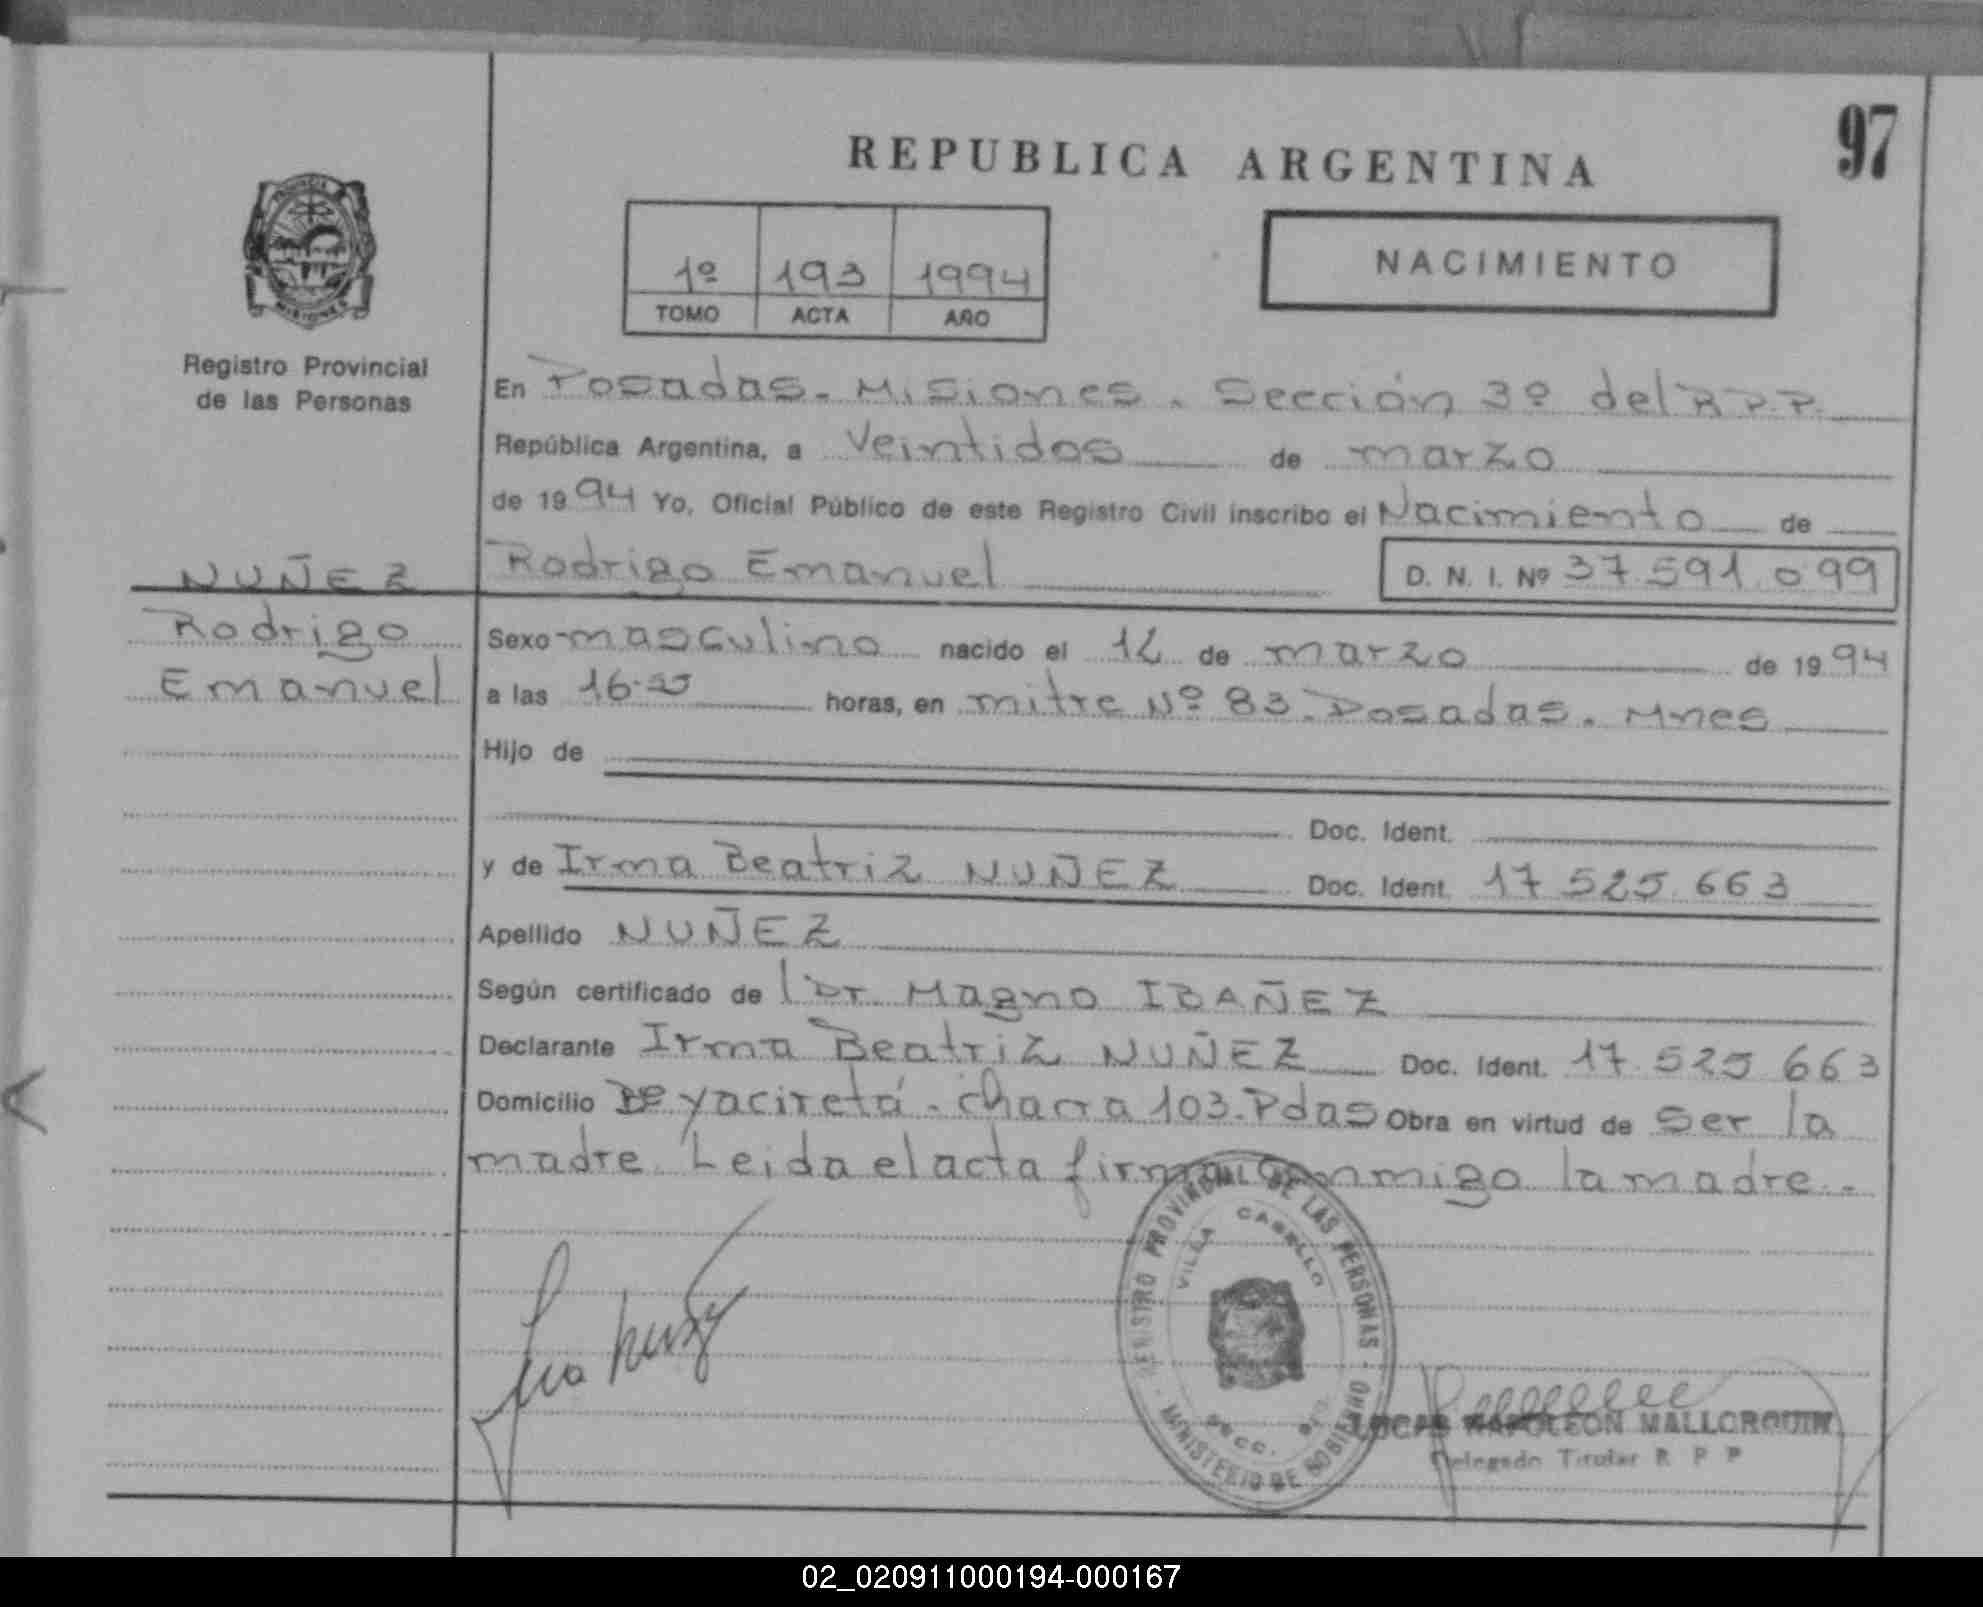 97
REPUBLICA ARGENTINA
1º 193 1994
TOMO ACTA AÑO
NACIMIENTO
PROVINCIA
MISIONES
Registro Provincial
de las Personas
En Posadas - Misiones. Sección 3º del R.P.P.
República Argentina, a Veintidos de marzo
de 1994 Yo, Oficial Público de este Registro Civil inscribo el Nacimiento de
NUÑEZ Rodrigo Emanuel D. N. I. Nº 37.591.099
Rodrigo Sexo masculino nacido el 12 de marzo de 1994
Emanuel a las 16. horas, en mitre Nº 83. Posadas. Mnes
Hijo de
Doc. Ident.
y de Irma Beatriz NUÑEZ Doc. Ident. 17 525.663
Apellido NUÑEZ
Según certificado de l Dr. Magno IBAÑEZ
Declarante Irma Beatriz NUÑEZ Doc. Ident. 17.525 663
Domicilio Bº Yaciretá - chacra 103. Pdas Obra en virtud de ser la
madre. Leida el acta firma conmigo la madre.-
REGISTRO PROVINCIAL DE LAS PERSONAS - MINISTERIO DE GOBIERNO -
VILLA CABELLO
SECC.
LUCAS NAPOLEON MALLORQUIN
Delegado Titular R P P
02_020911000194-000167